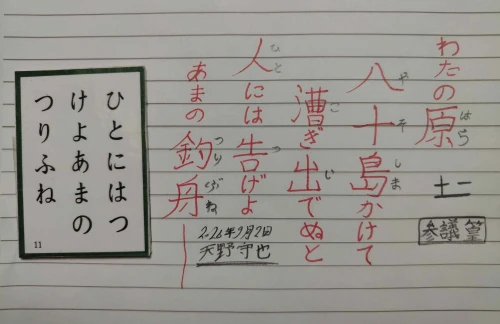 わたの原
はら
参議篁
八十島かけて
や そ しま
漕ぎ出でぬと
こ い
人には告げよ
ひと つ
あまの釣舟
つり ぶね
天野守也
ひとにはつ
けよあまの
つりふね
11